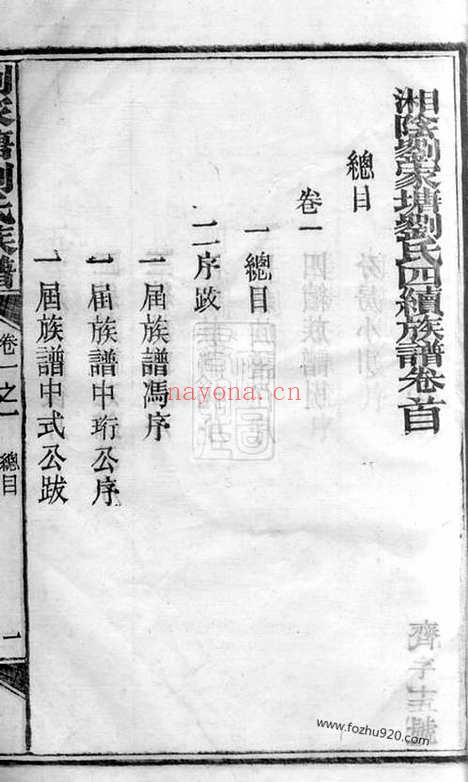 湘陰劉家塘劉氏四續族譜卷首
總目
卷一
一總目
二序跋
一屆族譜馮序
一屆族譜中珩公序
一屆族譜中式公跋
劉家塘劉氏族譜
卷一之一
總目
一
nayona.cn
www.fozhu920.com